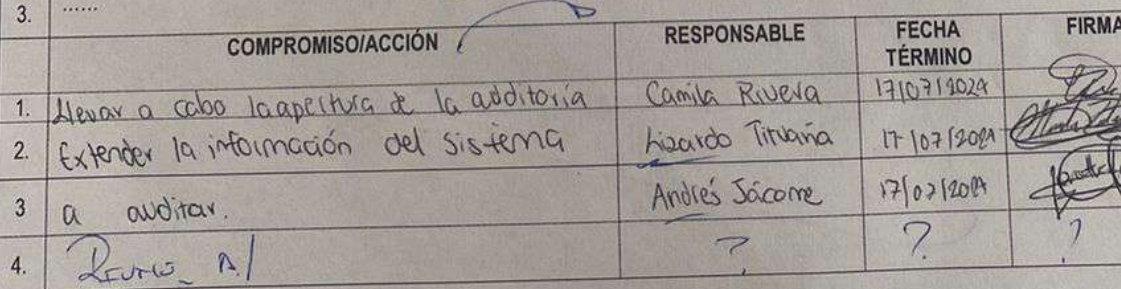 3. ......
COMPROMISO/ACCIÓN RESPONSABLE FECHA TÉRMINO FIRMA
1. Llevar a cabo la apertura de la auditoría Camila Rivera 17/07/2024
2. Extender la información del sistema Lizardo Tituaña 17/07/2024
3 a auditar. Andrés Jácome 17/07/2024
4. ? ? ?